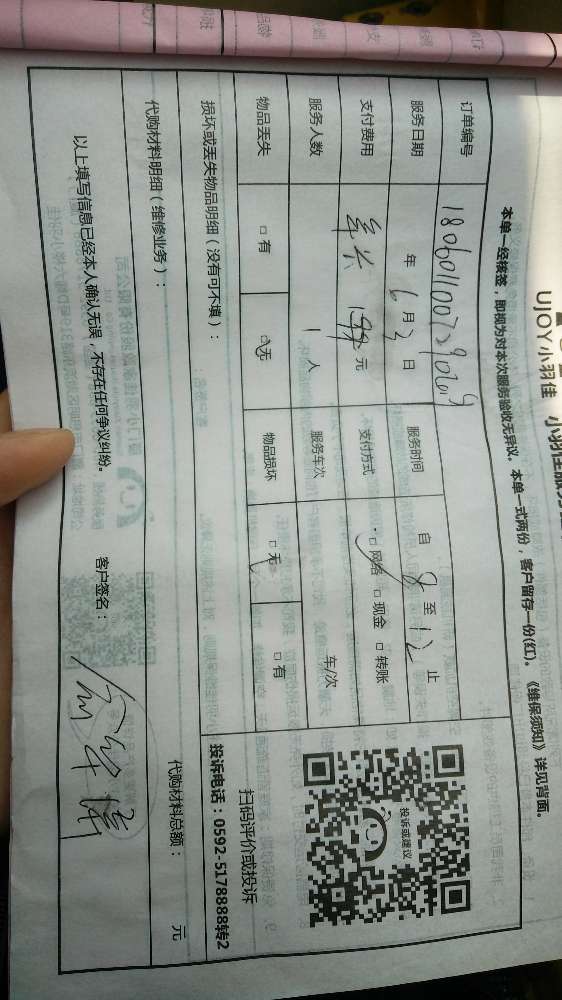 UJOY小羽佳 小羽佳服务
本单一经核签，即视为对本次服务验收无异议。本单一式两份，客户留存一份(红)。《维保须知》详见背面。
订单编号
服务日期 年 6月3日 服务时间 自 8 至 12 止
支付费用 元 支付方式 □网络 □现金 □转账
服务人数 1 人 服务车次 车/次
物品丢失 □有 □无 物品损坏 □无 □有
投诉或建议
扫码评价或投诉
投诉电话：0592-5178888转2
损坏或丢失物品明细（没有可不填）：
代购材料明细（维修业务）： 代购材料总额： 元
以上填写信息已经本人确认无误，不存在任何争议纠纷。 客户签名：